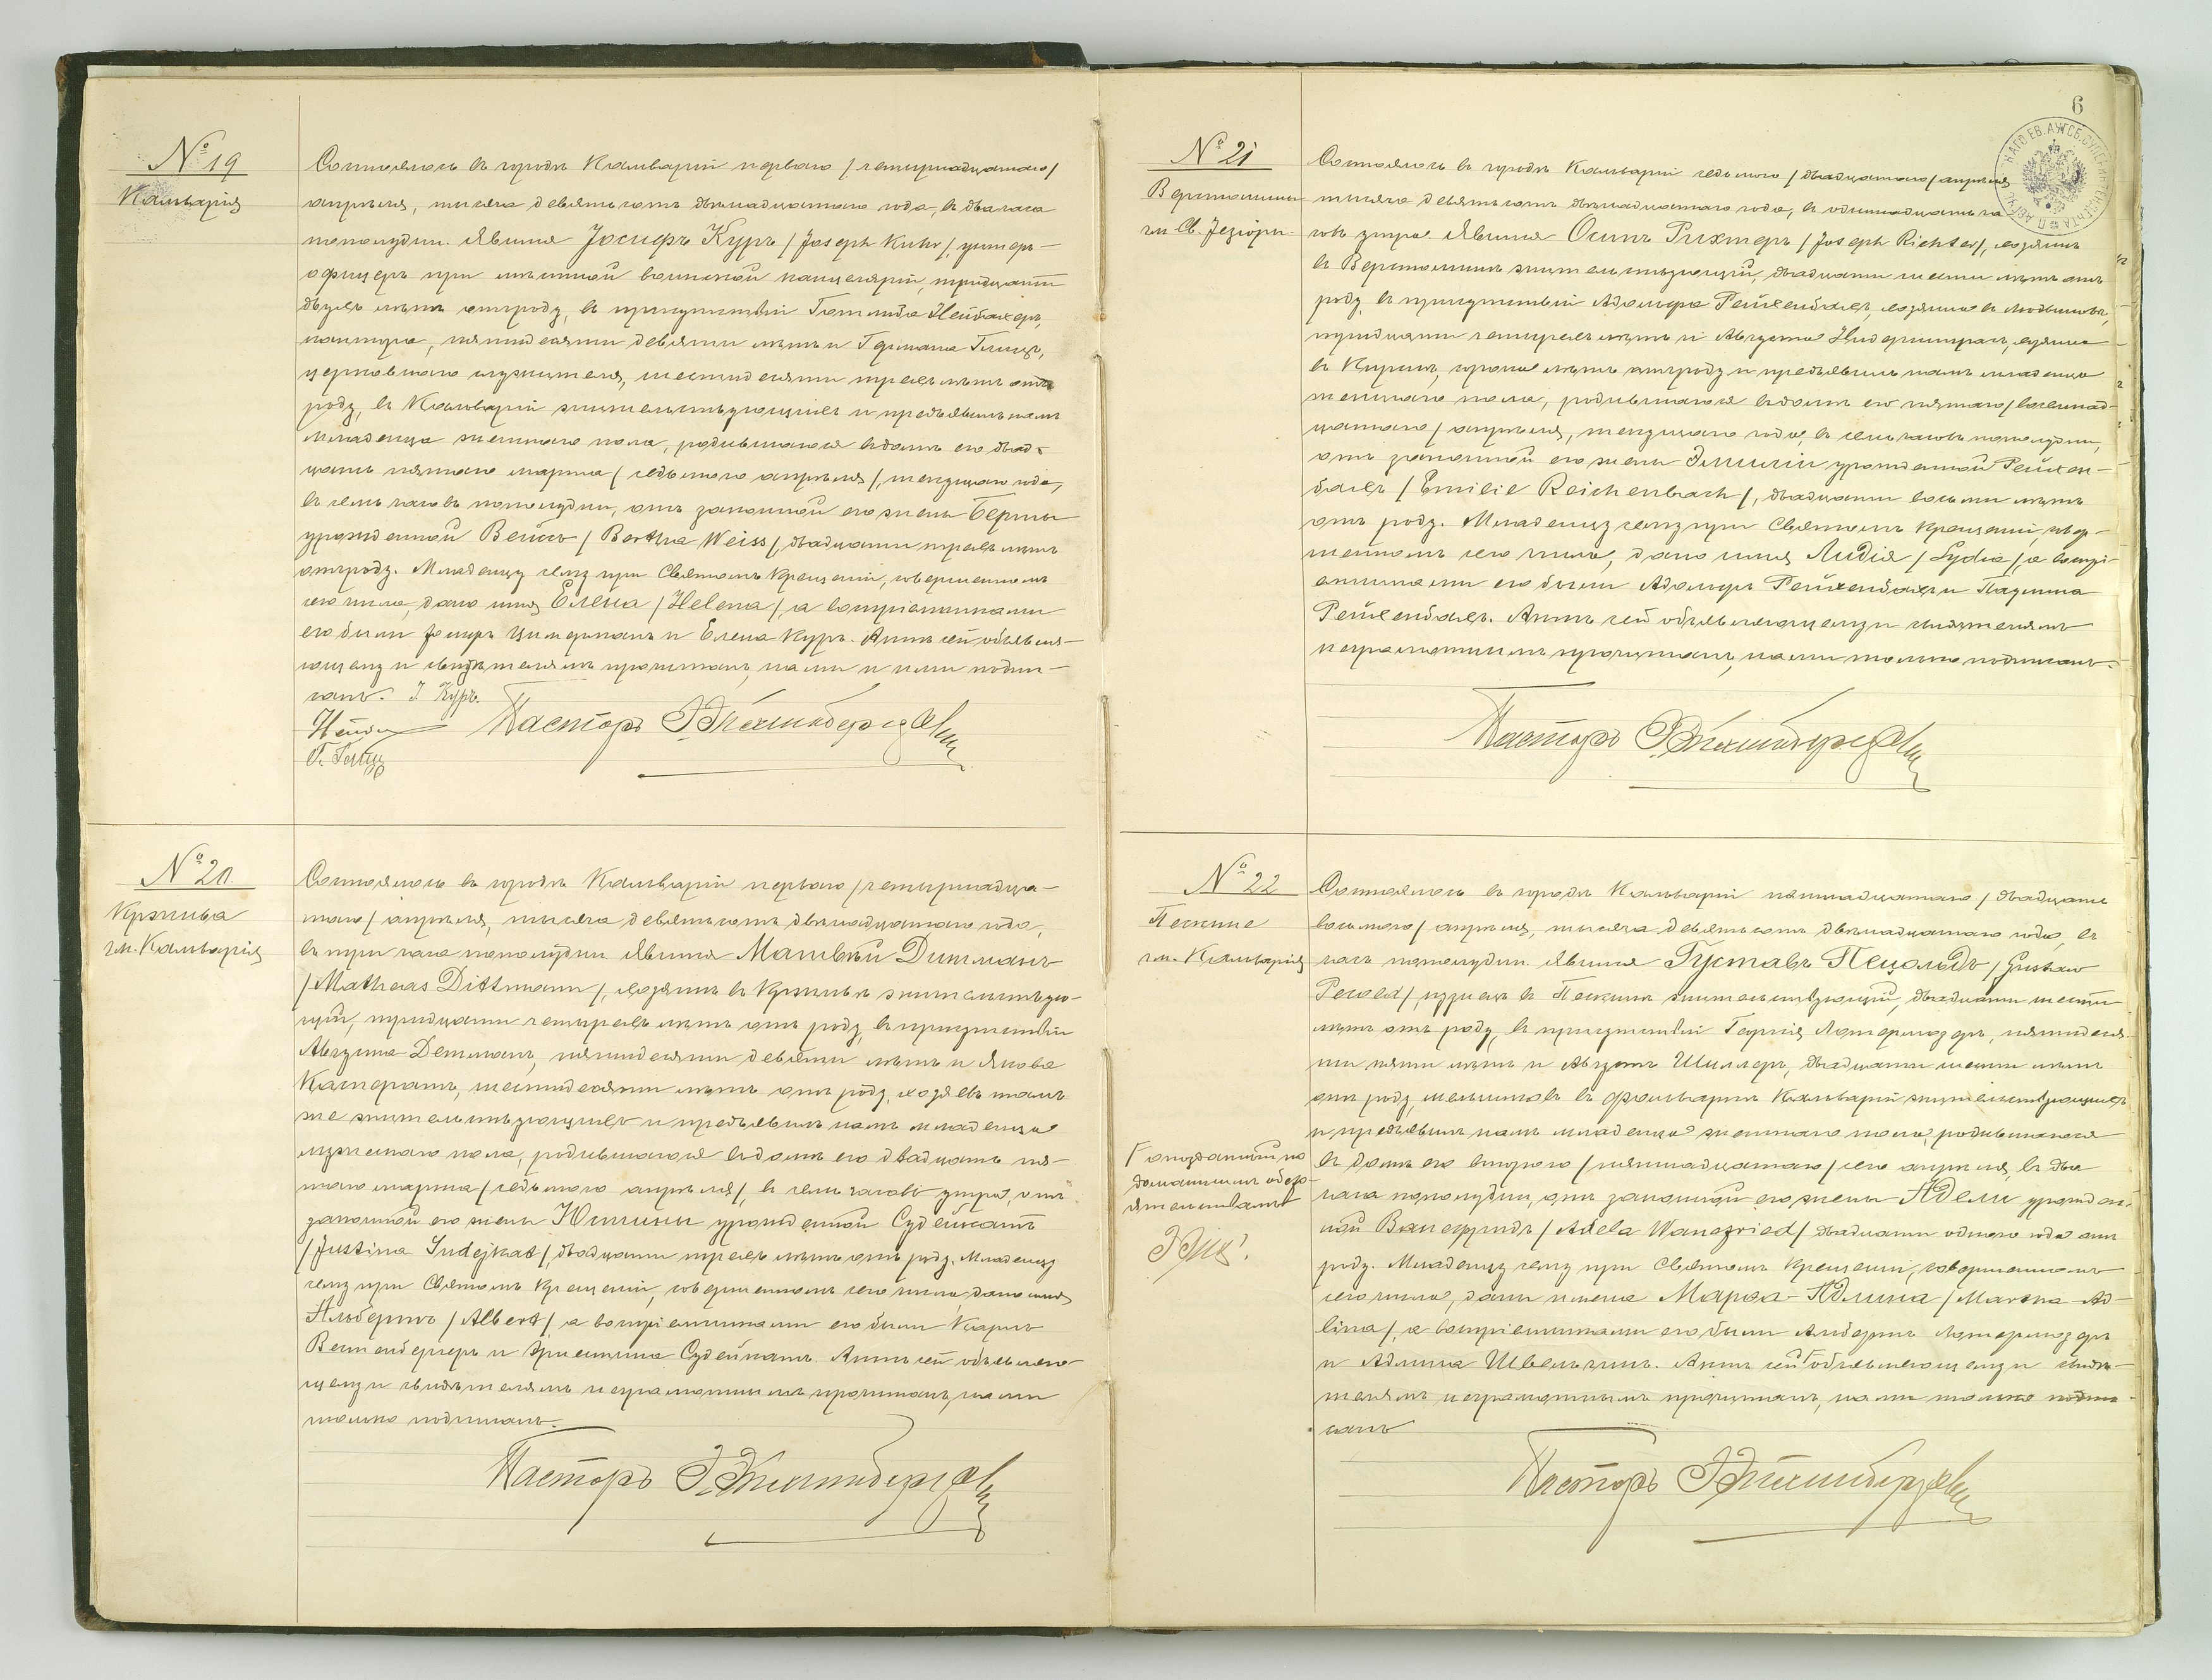 № 19
Кальварія
Состоялось въ городѣ Кальваріи перваго /четырнадцатаго/
апрѣля, тысяча девятьсотъ двѣнадцатаго года, въ два часа
пополудни. Явился Іосифъ Куръ /Joseph Kuhr/, унтеръ-
офицеръ при мѣстной воинской канцеляріи, тридцати
двухъ лѣтъ отъ роду, въ присутствіи Готлиба
пастора, пятидесяти девяти лѣтъ и Германа
церковнаго служителя, шестидесяти трехъ лѣтъ отъ
роду, въ Кальваріи жительствующихъ и предъявилъ намъ
младенца женскаго пола, родившагося въ домѣ его двад-
цать пятаго марта /седьмого апрѣля/, текущаго года,
въ семь часовъ пополудни, отъ законной его жены Берты
урожденной Вейсъ /Bertha Weiss/, двадцати трехъ лѣтъ
отъ роду. Младенцу сему при Святомъ Крещеніи, совершенномъ
сего числа, дано имя Елена /Helena/, а воспріемниками
его были Іосифъ Цимерманъ и Елена Куръ. Актъ сей объявля-
ющему и свидѣтелямъ прочитанъ, нами и ими подпи-
санъ. І. Куръ.
Пасторъ
№ 20
гм. Кальварія
Состоялось въ городѣ Кальваріи перваго /четырнадца-
таго/ апрѣля, тысяча девятьсотъ двѣнадцатаго года,
въ три часа пополудни. Явился Матвѣй Дитманъ
/Matheas Dittmann/, хозяинъ въ жительствую-
щій, тридцати четырехъ лѣтъ отъ роду, въ присутствіи
Августа Детманъ, пятидесяти девяти лѣтъ и Якова
шестидесяти лѣтъ отъ роду, хозяевъ тамъ
же жительствующихъ и предъявилъ намъ младенца
мужескаго пола, родившагося въ домѣ его двадцать пя-
таго марта /седьмого апрѣля/, въ семь часовъ утра, отъ
законной его жены Юстины урожденной Судейкатъ
/Justina Sudejkat/, двадцати трехъ лѣтъ отъ роду. Младенцу
сему при Святомъ Крещеніи, совершенномъ сего числа, дано имя
Альбертъ /Albert/, а воспріемниками его были Карлъ
и Судейкатъ. Актъ сей объявляю-
щему и свидѣтелямъ неграмотнымъ прочитанъ, нами
только подписанъ.
Пасторъ
6
№ 21
гм. Св. Језіоры.
Состоялось въ городѣ Кальваріи седьмого /двадцатаго/ апрѣля
тысяча девятьсотъ двѣнадцатаго года, въ одиннадцать ча-
совъ утра. Явился Осипъ Рихтеръ /Joseph Richter/, хозяинъ
въ жительствующій, двадцати шести лѣтъ отъ
роду, въ присутствіи Адольфа Рейхенбахъ, хозяина въ
тридцати четырехъ лѣтъ и Августа хозяина
въ сорока лѣтъ отъ роду и предъявилъ намъ младенца
женскаго пола, родившагося въ домѣ его пятаго /восемнад-
цатаго/ апрѣля, текущаго года, въ семь часовъ пополудни,
отъ законной его жены Эмиліи урожденной Рейхен-
бахъ /Emilie Reichenbach/, двадцати восьми лѣтъ
отъ роду. Младенцу сему при Святомъ Крещеніи, совер-
шенномъ сего числа, дано имя Лидія /Lydia/, а воспрі-
емниками его были Адольфъ Рейхенбахъ и Паулина
Рейхенбахъ. Актъ сей объявляющему и свидѣтелямъ
неграмотнымъ прочитанъ, нами только подписанъ.
Пасторъ
№ 22
гм. Кальварія
Состоялось въ городѣ Кальваріи пятнадцатаго /двадцать
восьмого/ апрѣля, тысяча девятьсотъ двѣнадцатаго года, въ
часъ пополудни. Явился Густавъ Пецольдъ /Gustaw
въ жительствующій, двадцати шести
лѣтъ отъ роду, въ присутствіи Георгія пятидеся-
ти пяти лѣтъ и Августа Шиллеръ, двадцати шести лѣтъ
отъ роду, въ фольваркѣ Кальварія жительствующихъ
и предъявилъ намъ младенца женскаго пола, родившагося
въ домѣ его второго /пятнадцатаго/ сего апрѣля, въ два
часа пополудни, отъ законной его жены Адели урожден-
ной Ванефридъ /Adela Wanefried/ двадцати одного года отъ
роду. Младенцу сему при Святомъ Крещеніи, совершенномъ
сего числа, даны имена Марѳа-Адлина /Martha-Ad-
lina/, а воспріемниками его были Альбертъ
и Адлина Актъ сей Г объявляющему и свидѣ-
телямъ неграмотнымъ прочитанъ, нами только подпи-
санъ
Г опозданный по
домашнимъ обсто-
ятельствамъ
Пасторъ